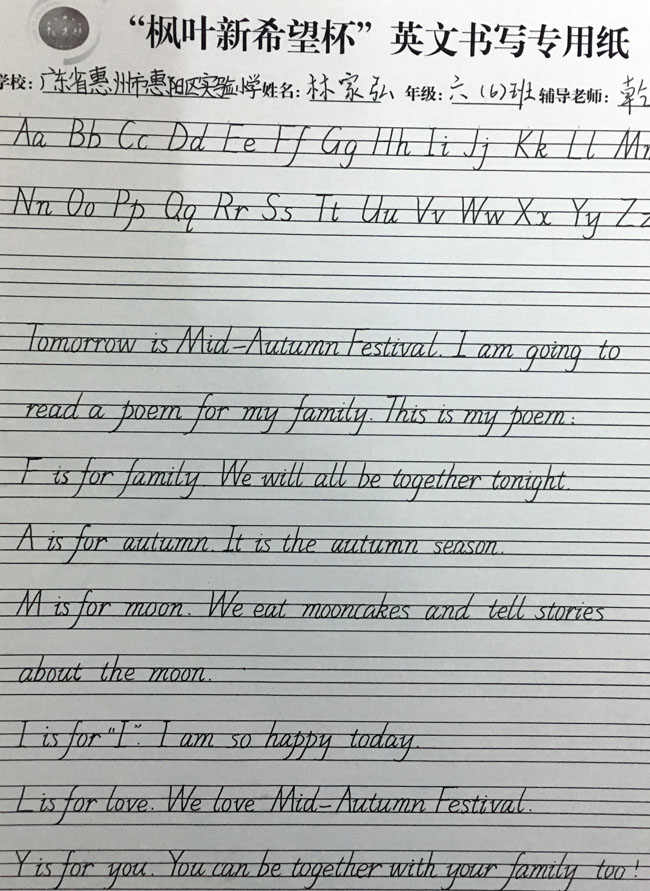 “枫叶新希望杯”英文书写专用纸
学校：广东省惠州市惠阳区实验小学 姓名：林家弘 年级：六（6）班 辅导老师：
Aa Bb Cc Dd Ee Ff Gg Hh Ii Jj Kk Ll Mm
Nn Oo Pp Qq Rr Ss Tt Uu Vv Ww Xx Yy Zz
Tomorrow is Mid-Autumn Festival. I am going to
read a poem for my family. This is my poem:
F is for family. We will all be together tonight.
A is for autumn. It is the autumn season.
M is for moon. We eat mooncakes and tell stories
about the moon.
I is for “I”. I am so happy today.
L is for love. We love Mid-Autumn Festival.
Y is for you. You can be together with your family too!